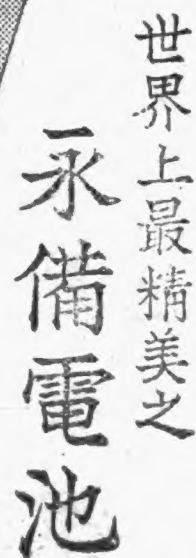 世界上最精美之
永備電池